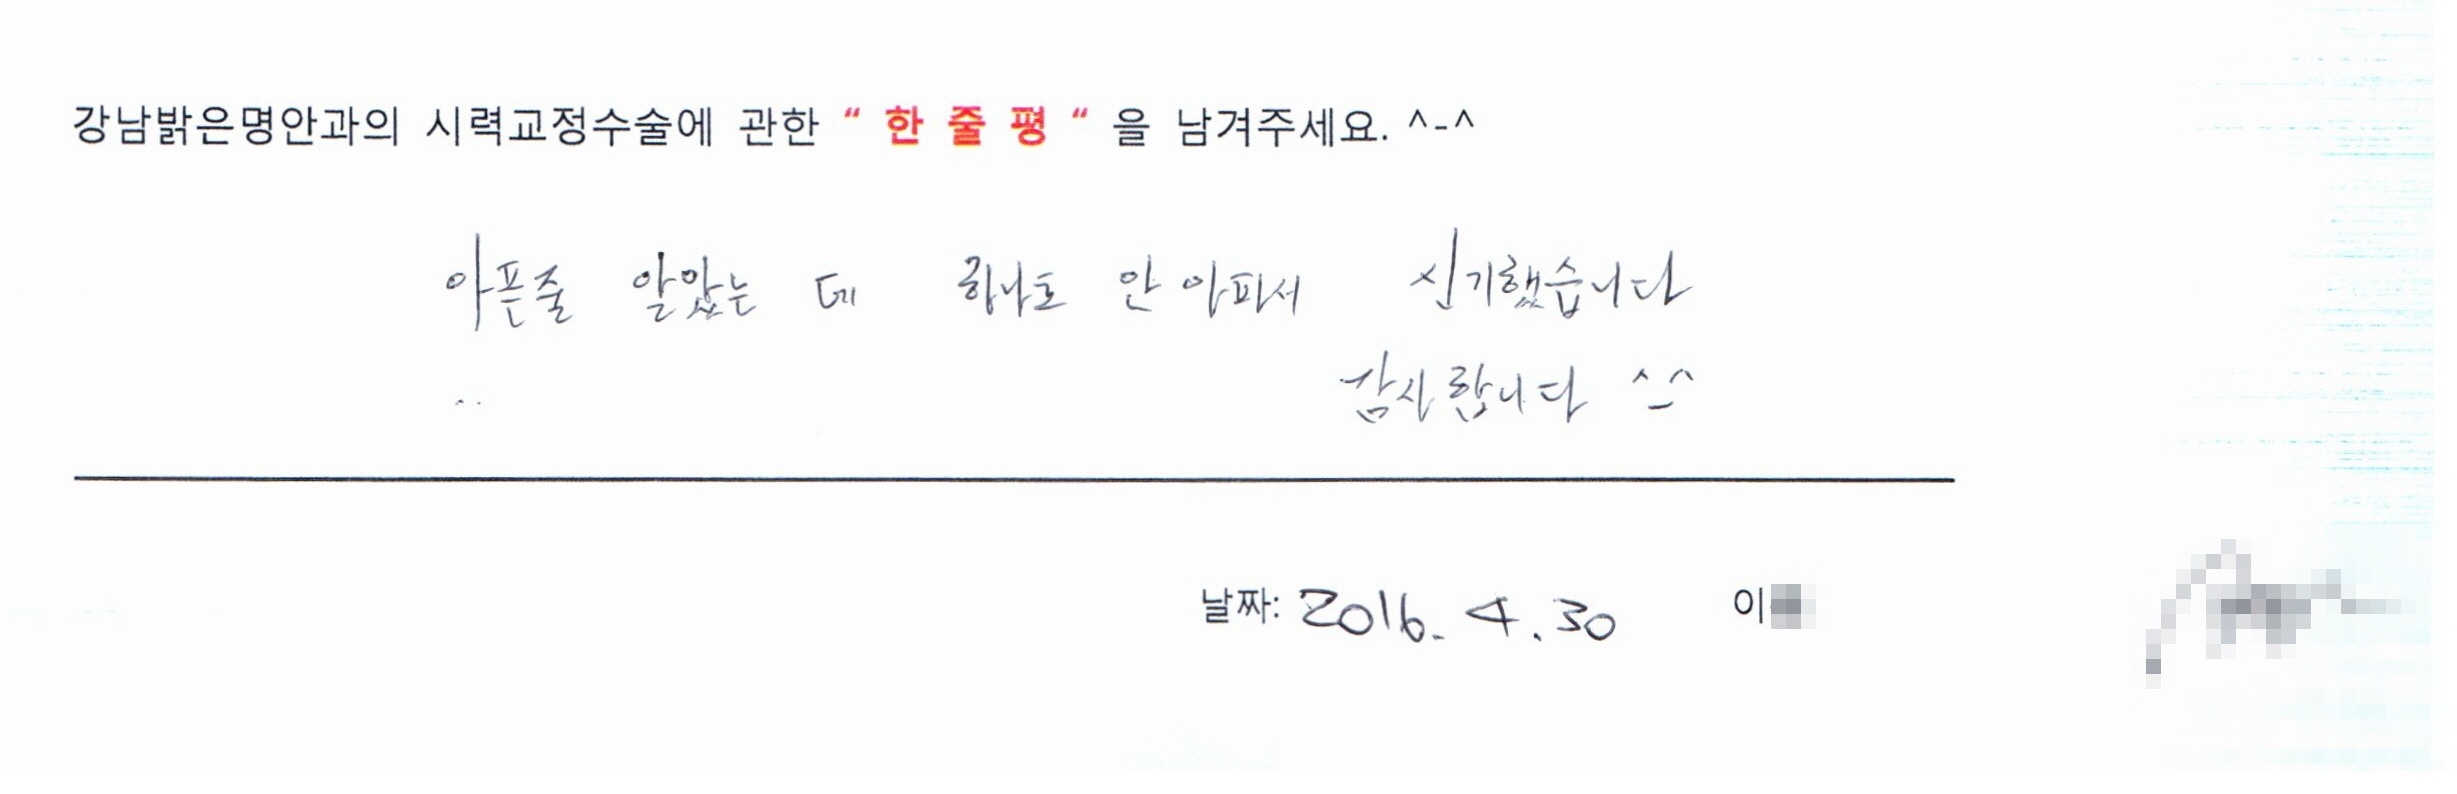 강남밝은명안과의 시력교정수술에 관한 “ 한 줄 평 “ 을 남겨주세요. ^-^
아픈줄 알았는 데 하나도 안 아파서 신기했습니다
감사합니다 ^_^
날짜: 2016. 4. 30 이